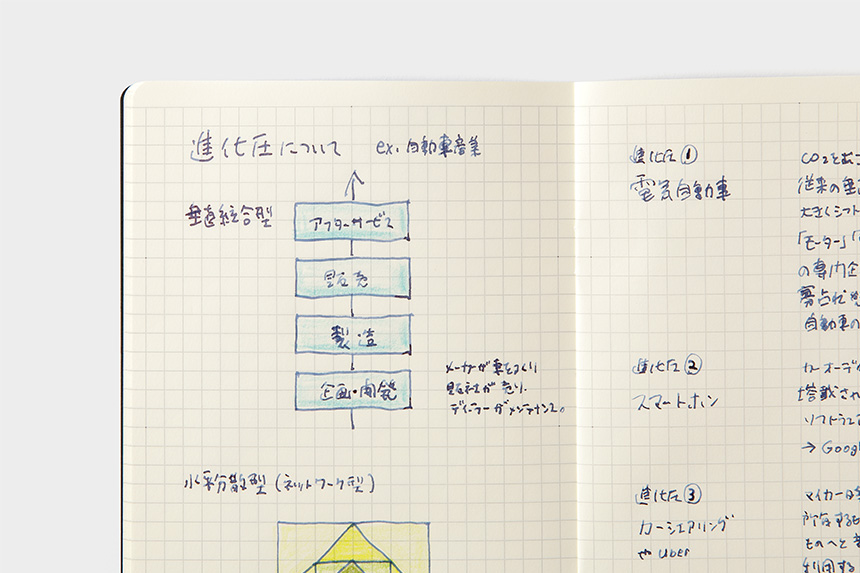 進化圧について ex. 自動車産業
垂直統合型
アフターサービス
販売
製造
企画・開発
メーカーが車をつくり
販社が売り、
ディーラーがメンテナンス。
水平分散型(ネットワーク型)
進化圧①
電気自動車
CO2を
従来の垂
大きくシフト
「モーター」
の専門企
寡占化
自動車の
進化圧②
スマートホン
カーオーディ
搭載され
ソフトウェア
→ Google
進化圧③
カーシェアリング
や Uber
マイカーは
所有する
ものへと
利用する